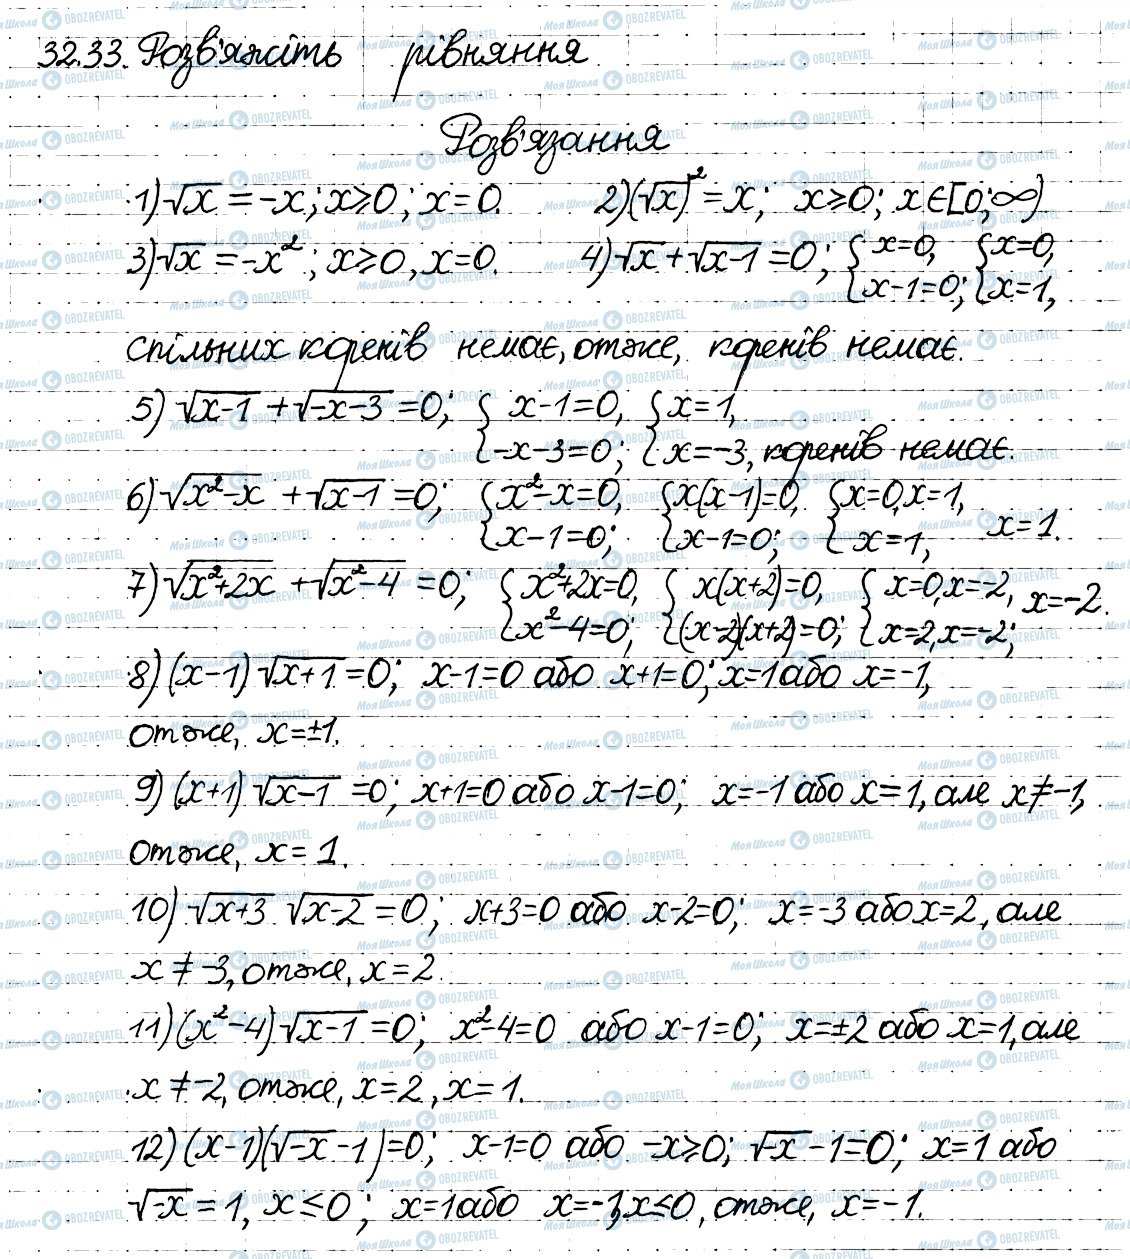 32.33. Розв'яжіть рівняння
Розв'язання
1) √x = -x; x≥0; x=0. 2) (√x)² = x; x≥0; x∈[0;∞)
3) √x = -x²; x≥0, x=0. 4) √x + √(x-1) = 0; {x=0, x-1=0; {x=0, x=1,
спільних коренів немає, отже, коренів немає.
5) √(x-1) + √(-x-3) = 0; {x-1=0, -x-3=0; {x=1, x=-3, коренів немає.
6) √(x²-x) + √(x-1) = 0; {x²-x=0, x-1=0; {x(x-1)=0, x-1=0; {x=0, x=1, x=1, x=1.
7) √(x²+2x) + √(x²-4) = 0; {x²+2x=0, x²-4=0; {x(x+2)=0, (x-2)(x+2)=0; {x=0, x=-2, x=2, x=-2; x=-2.
8) (x-1)√(x+1) = 0; x-1=0 або x+1=0; x=1 або x=-1,
отже, x=±1.
9) (x+1)√(x-1) = 0; x+1=0 або x-1=0; x=-1 або x=1, але x≠-1,
отже, x=1.
10) √(x+3) √(x-2) = 0; x+3=0 або x-2=0; x=-3 або x=2, але
x≠-3, отже, x=2.
11) (x²-4)√(x-1) = 0; x²-4=0 або x-1=0; x=±2 або x=1, але
x≠-2, отже, x=2, x=1.
12) (x-1)(√(-x)-1)=0; x-1=0 або -x≥0; √(-x)-1=0; x=1 або
√(-x)=1, x≤0; x=1 або x=-1, x≤0, отже, x=-1.